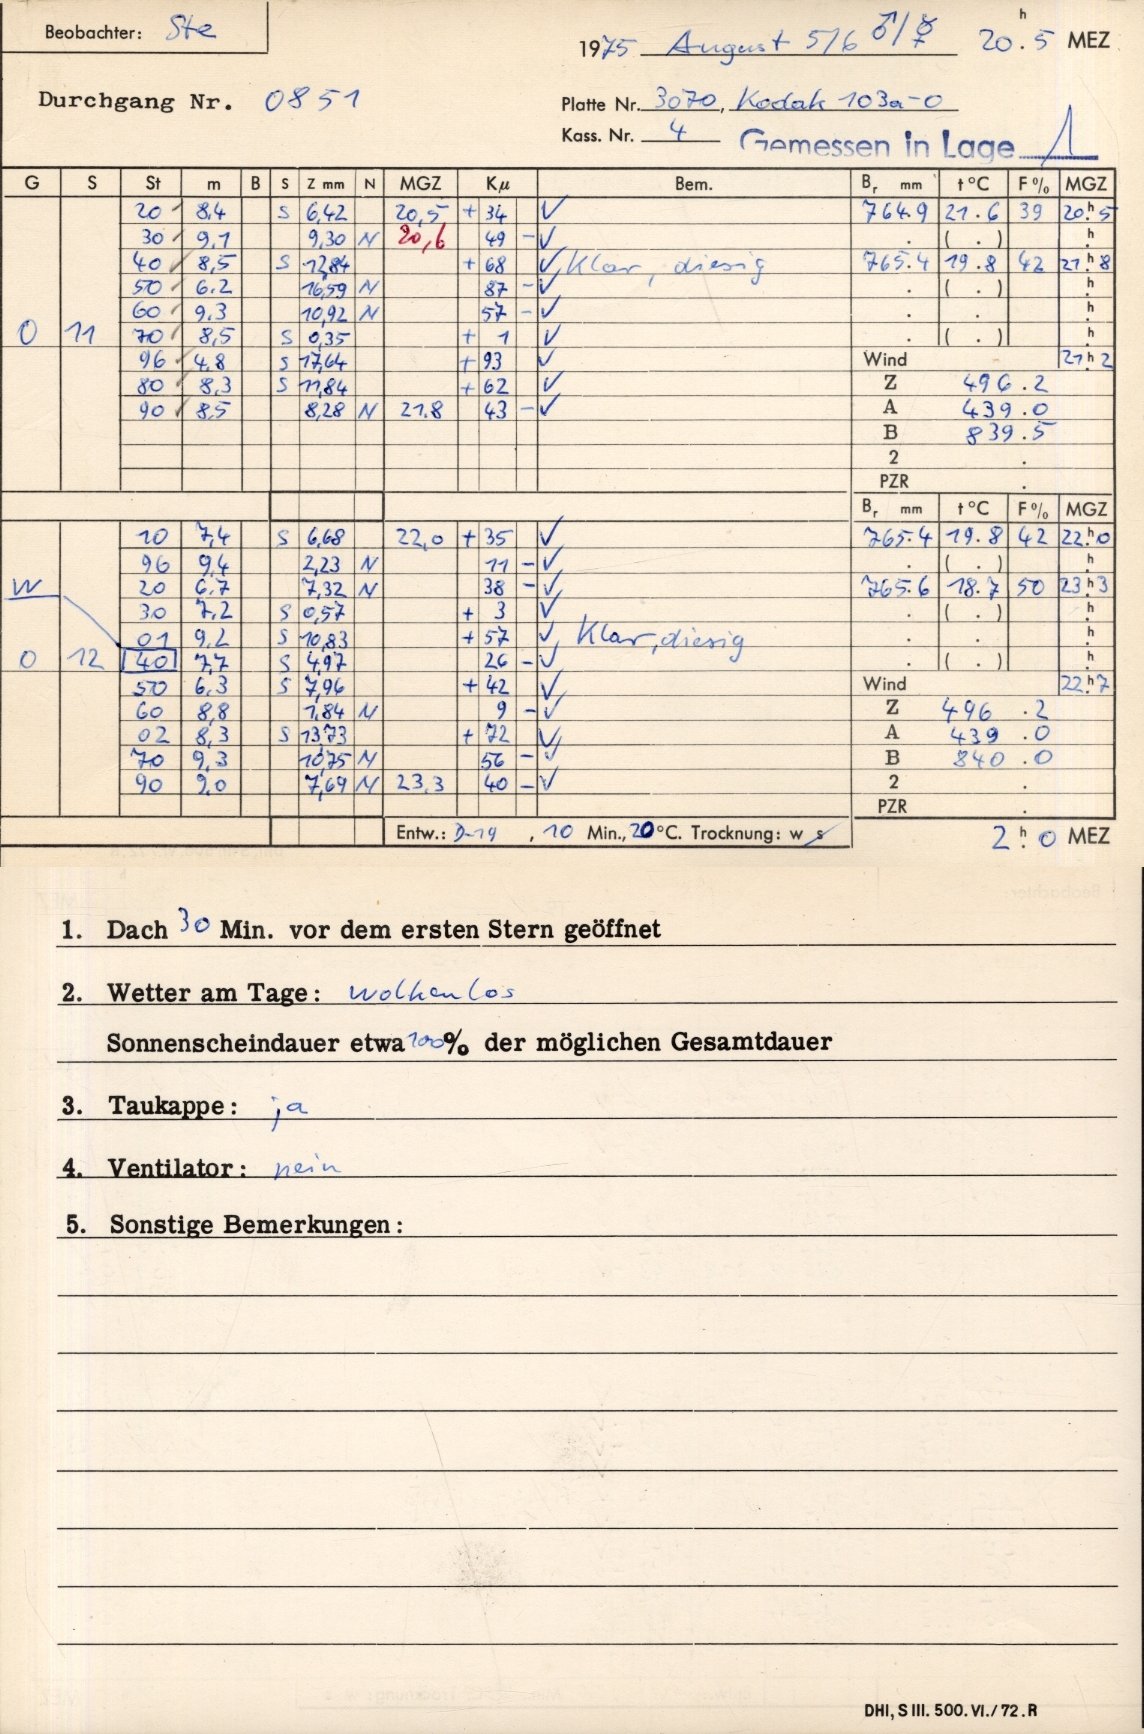 Beobachter: Ste
1975 August 5/6 ♂/☿ 20.h5 MEZ
Durchgang Nr. 0851
Platte Nr. 3070, Kodak 103a-O
Kass. Nr. 4 Gemessen in Lage 1
G S St m B S Z mm N MGZ Kμ Bem. Br mm t °C F% MGZ
20 8,4 S 6,42 20,5 + 34 ✓ 764.9 21.6 39 20.h5
30 9,1 9,30 N 20,6 49 - ✓ . ( . ) .h
40 8,5 S 12,84 + 68 ✓, Klar, diesig 765.4 19.8 42 21.h8
50 6.2 16,59 N 87 - ✓ . ( . ) .h
60 9.3 10,92 N 57 - ✓ . . .h
O 11 70 8,5 S 0,35 + 1 ✓ . ( . ) .h
96 4.8 S 17,64 + 93 ✓ Wind 21.h2
80 8,3 S 11,84 + 62 ✓ Z 496.2
90 8,5 8,28 N 21.8 43 - ✓ A 439.0
B 839.5
2 .
PZR .
Br mm t °C F% MGZ
10 7,4 S 6,68 22,0 + 35 ✓ 765.4 19.8 42 22.h0
96 9,4 2,23 N 11 - ✓ . ( . ) .h
W 20 6.7 7,32 N 38 - ✓ 765.6 18.7 50 23.h3
30 7,2 S 0,57 + 3 ✓ . ( . ) .h
01 9,2 S 10,83 + 57 ✓, Klar, diesig . . .h
O 12 40 7,7 S 4,97 26 - ✓ . ( . ) .h
50 6,3 S 7,96 + 42 ✓ Wind 22.h7
60 8,8 1,84 N 9 - ✓ Z 496.2
02 8,3 S 13,73 + 72 ✓ A 439.0
70 9,3 10,75 N 56 - ✓ B 840.0
90 9,0 7,69 N 23,3 40 - ✓ 2 .
PZR .
Entw.: D-19, 10 Min., 20°C. Trocknung: w s 2.h0 MEZ
1. Dach 30 Min. vor dem ersten Stern geöffnet
2. Wetter am Tage: wolkenlos
Sonnenscheindauer etwa 100% der möglichen Gesamtdauer
3. Taukappe: ja
4. Ventilator: nein
5. Sonstige Bemerkungen:
DHI, S III. 500. VI./72. R